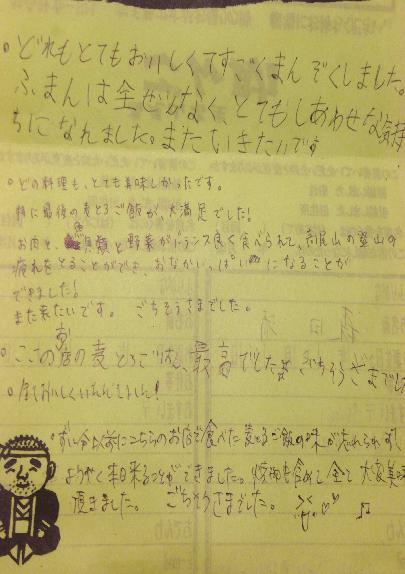 ○どれもとてもおいしくてすごくまんぞくしました。
ふまんは全ぜんなく、とてもしあわせな気持
ちになれました。またいきたいです
○どの料理も、とても美味しかったです。
特に最後の麦とろご飯が、大満足でした!
お肉と、魚貝類と野菜がバランス良く食べられて、高尾山の登山の
疲れをとることができ、おなかいっぱいになることが
できました!
また来たいです。 ごちそうさまでした。
○ここのお店の麦とろごはん、最高でした ごちそうさまでした
○全ておいしくいただきました!
○ずい分以前にこちらのお店で食べた麦とろご飯の味が忘れられず、
ようやく本日来ることができました。焼物も含めて全て大変美味
頂きました。 ごちそうさまでした。